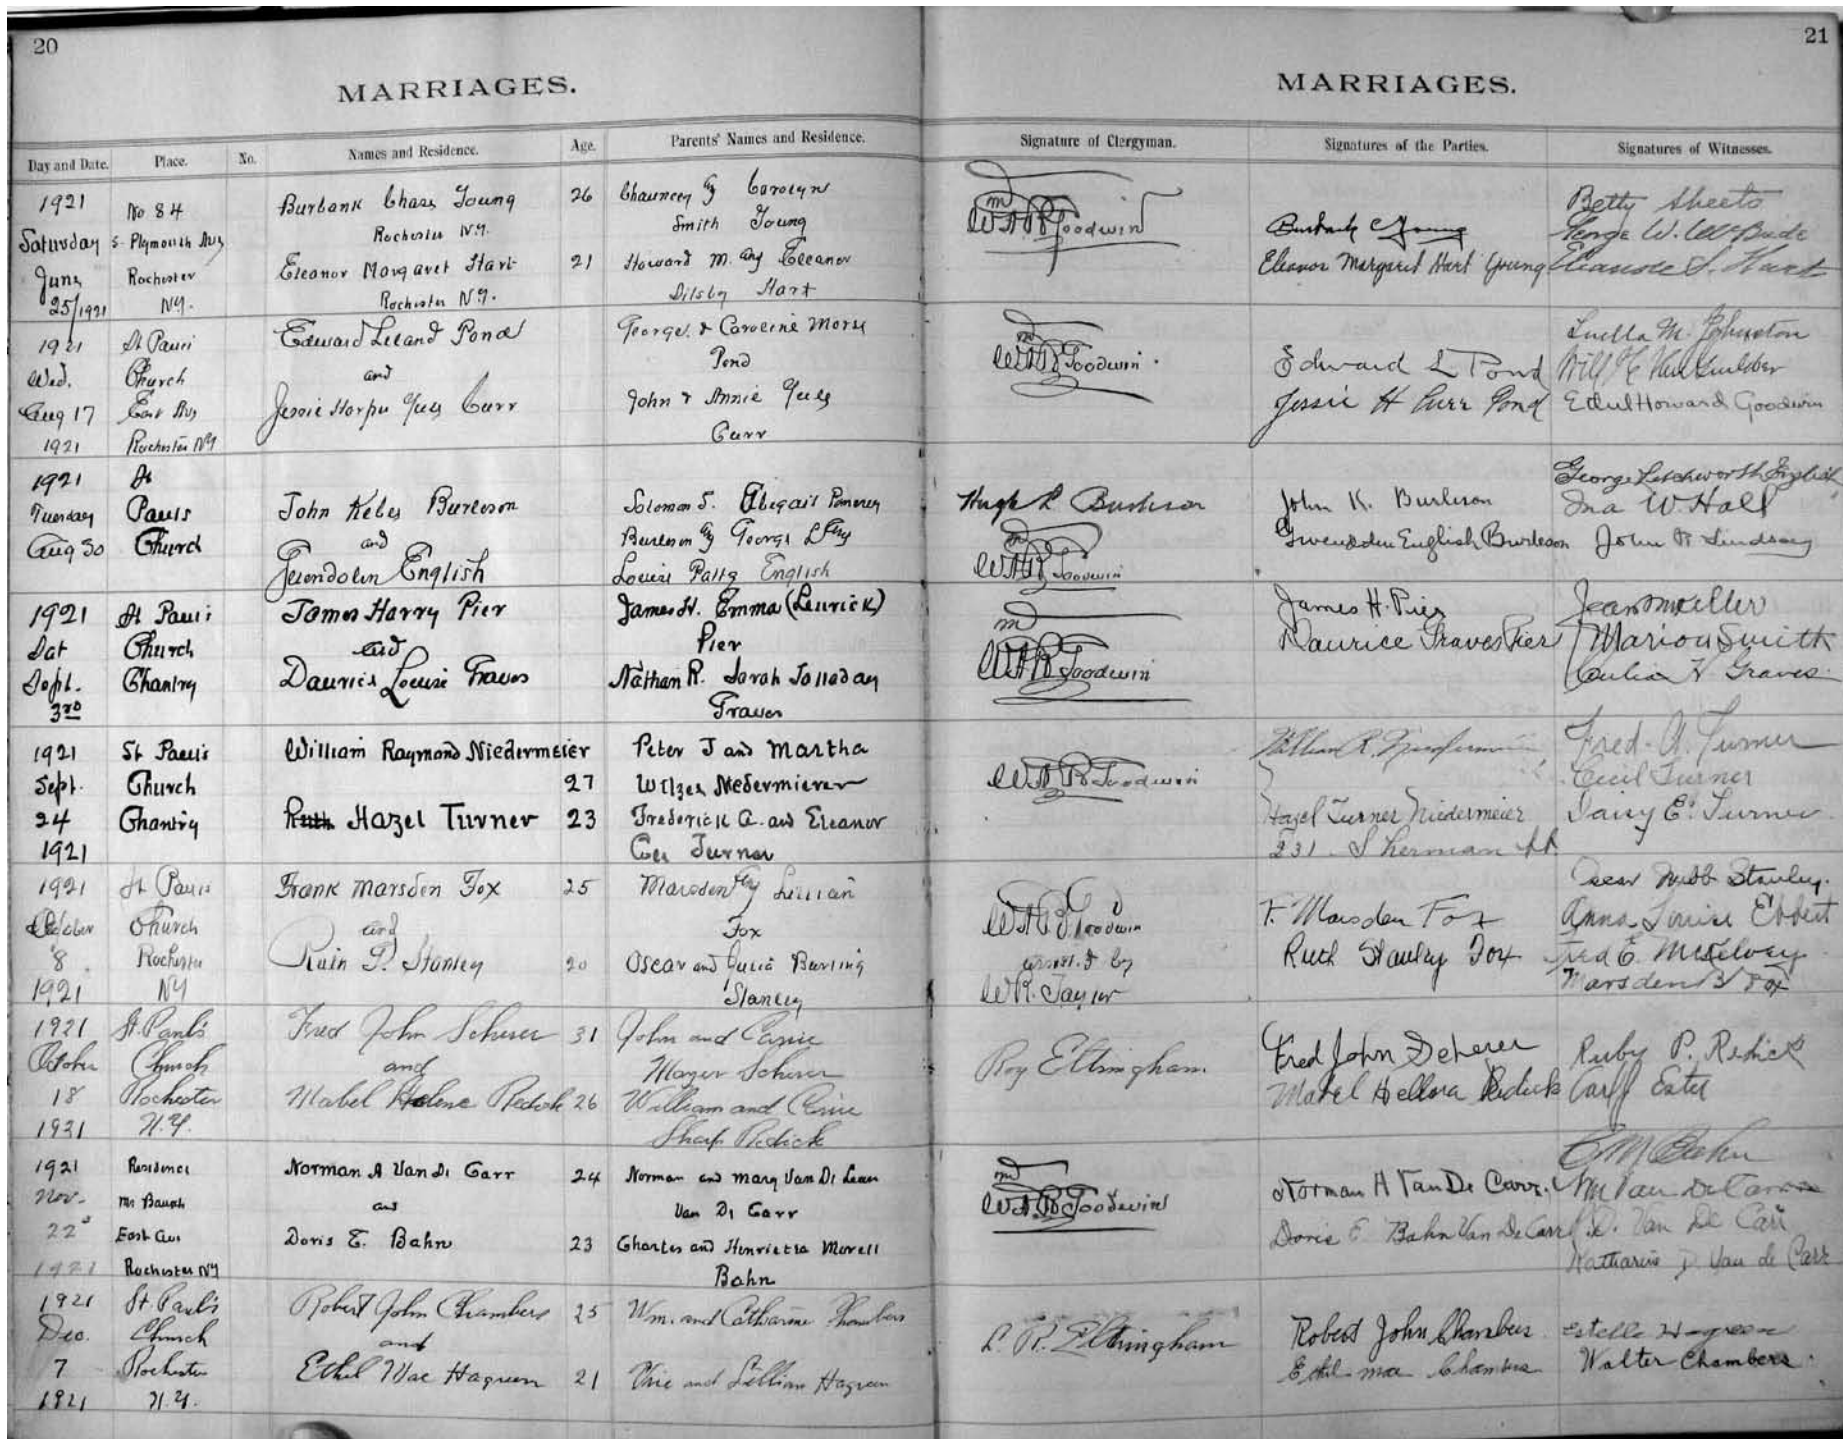 20
MARRIAGES.
Day and Date.
Place.
No.
Names and Residence.
Age.
Parents' Names and Residence.
1921
Saturday
June
25/1921
No 84
S. Plymouth Ave
Rochester
N.Y.
Burbank Chase Young
Rochester N.Y.
Eleanor Margaret Hart
Rochester N.Y.
26
21
Chauncey & Carolyn
Smith Young
Howard M. and Eleanor
Hart
1921
Wed.
Aug 17
1921
St Pauls
Church
East Ave
Rochester NY
Edward Leland Pond
and
Jessie Harper Carr
George & Caroline Morse
Pond
John & Annie
Carr
1921
Tuesday
Aug 30
St
Pauls
Church
John Keble Burleson
and
Gwendolen English
Solomon S. Abigail Pomeroy
Burleson & George L
Louise English
1921
Sat
Sept.
3rd
St Pauls
Church
Chantry
James Harry Pier
and
Laurice Louise Graves
James H. Emma (Leurick)
Pier
Nathan R. Sarah
Graves
1921
Sept.
24
1921
St Paul's
Church
Chantry
William Raymond Niedermeier
27
Ruth Hazel Turner
23
Peter J and Martha
Frederick A. and Eleanor
Turner
1921
October
8
1921
St Pauls
Church
Rochester
NY
Frank Marsden Fox
and
Stanley
25
20
Marsden & Lillian
Fox
Oscar and Julia Burling
Stanley
1921
October
18
1921
St. Paul's
Church
Rochester
N.Y.
Fred John Scherer
and
Mabel Helene Redick
31
26
John and Carrie
Mayer Scherer
William and
Sharp Redick
1921
Nov.
22
1921
Residence
Mr
East Ave
Rochester NY
Norman A Van De Carr
and
Doris E. Bahn
24
23
Norman and Mary Van De
Van De Carr
Charles and Henrietta Morell
Bahn
1921
Dec.
7
1921
St. Paul's
Church
Rochester
N.Y.
Robert John Chambers
and
Ethel Mae Hagreen
25
21
Wm. and Catharine Chambers
and Lillian Hagreen
21
MARRIAGES.
Signature of Clergyman.
Signatures of the Parties.
Signatures of Witnesses.
W A R Goodwin
Burbank C Young
Eleanor Margaret Hart Young
Betty Sheets
George W.
Eleanor S. Hart
W A R Goodwin
Edward L Pond
Jessie H Carr Pond
Luella M. Johnston
Ethel Howard Goodwin
Hugh L Burleson
W A R Goodwin
John K. Burleson
Gwendolen English Burleson
George Letchworth English
Ina W. Hall
John R Lindsay
W A R Goodwin
James H. Pier
Laurice Graves Pier
Jean Mueller
Marion Smith
Graves
W A R Goodwin
William R. Niedermeier
Hazel Turner Niedermeier
231 Sherman St
Fred. A. Turner
Cecil Turner
Daisy E. Turner
W A R Goodwin
assisted by
W R. Taylor
F. Marsden Fox
Ruth Stanley Fox
Stanley.
Anna Louise Ebbert
Fred E. McKelvey
Marsden B Fox
Roy Eltringham
Fred John Scherer
Mabel Hellora Redick
Ruby P. Redick
Carl Ester
W A R Goodwin
Norman A Van De Carr.
Doris E Bahn Van De Carr
C M Bahn
Van De Carr
Katharine D. Van de Carr
L. R. Eltringham
Robert John Chambers
Ethel Mae Chambers
Estelle Hagreen
Walter Chambers